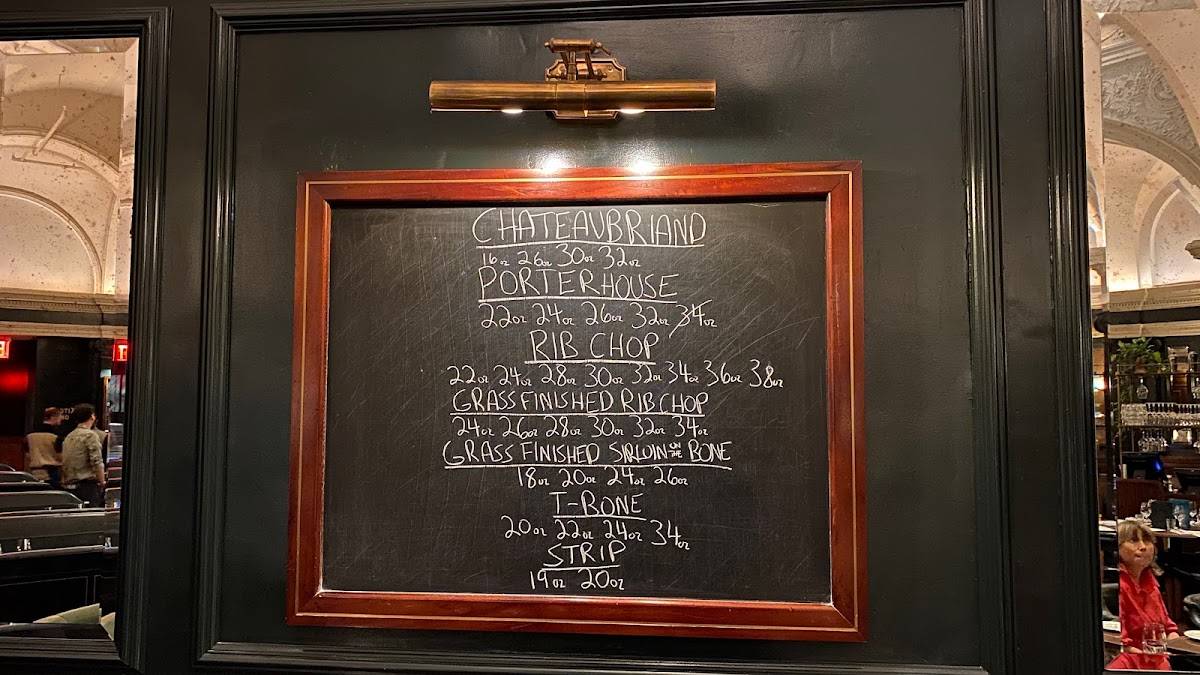 CHATEAUBRIAND
16oz 26oz 30oz 32oz
PORTERHOUSE
22oz 24oz 26oz 32oz 34oz
RIB CHOP
22oz 24oz 28oz 30oz 32oz 34oz 36oz 38oz
GRASS FINISHED RIB CHOP
24oz 26oz 28oz 30oz 32oz 34oz
GRASS FINISHED SIRLOIN ON THE BONE
18oz 20oz 24oz 26oz
T-BONE
20oz 22oz 24oz 34oz
STRIP
19oz 20oz